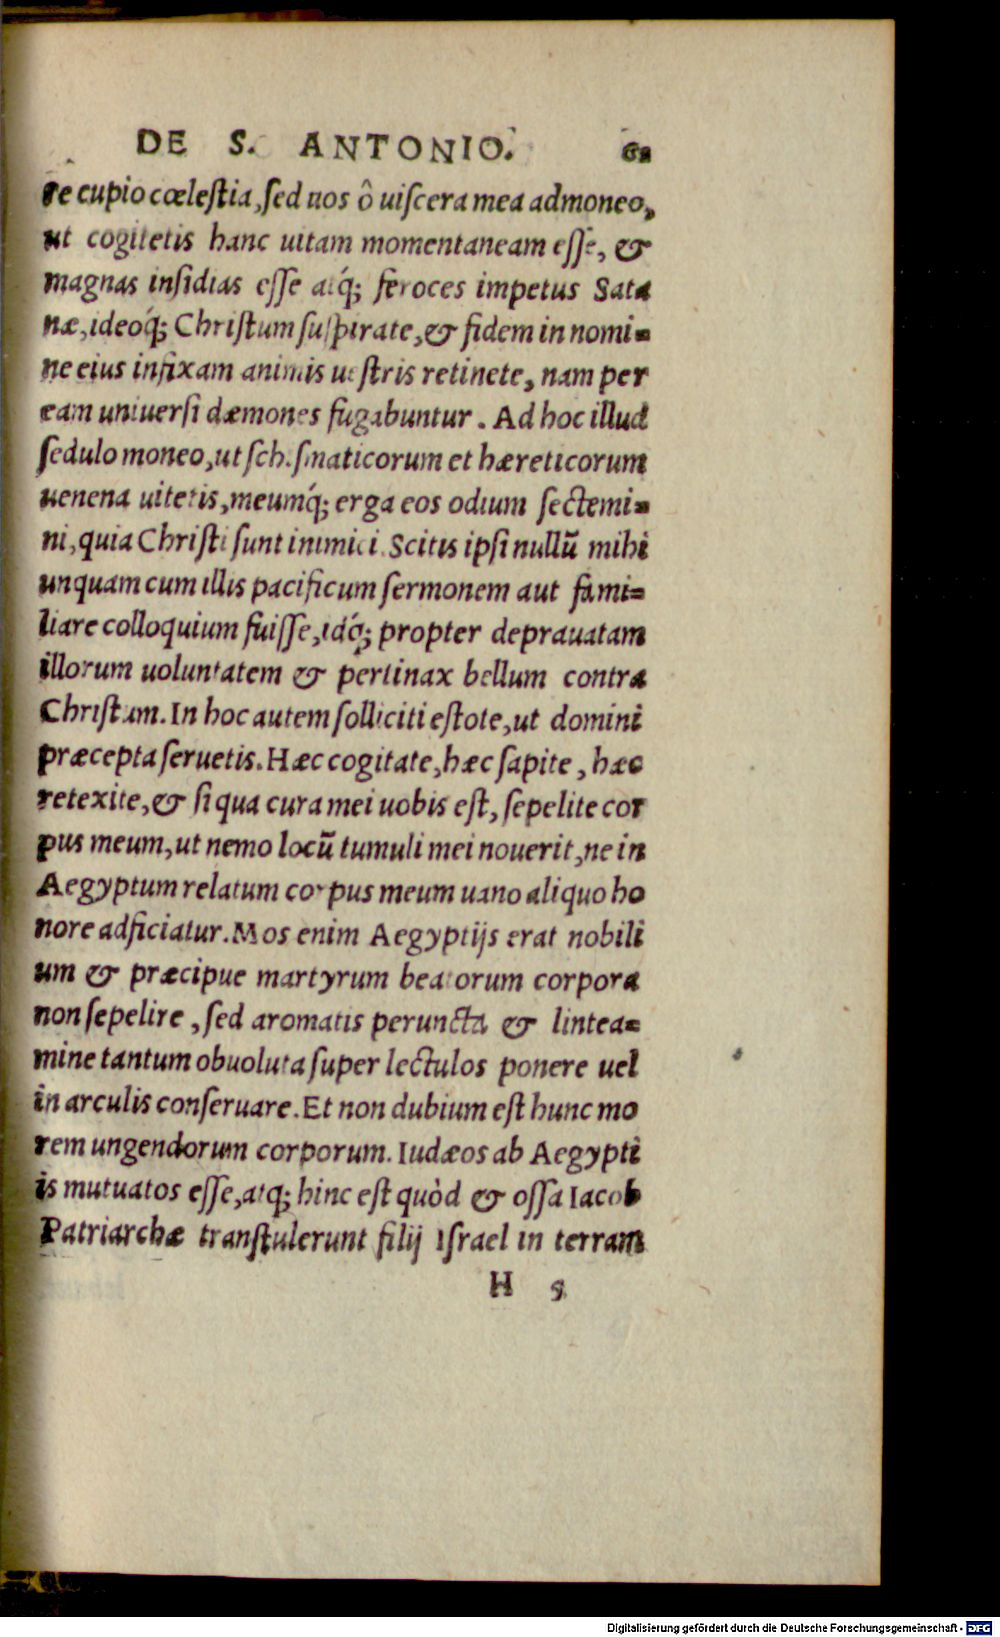 DE S. ANTONIO. 62
re cupio cœlestia, sed uos ô uiscera mea admoneo,
ut cogitetis hanc uitam momentaneam esse, &
magnas insidias esse atq́; feroces impetus Sata
næ, ideoq́; Christum suspirate, & fidem in nomi=
ne eius infixam animis uestris retinete, nam per
eam uniuersi dæmones fugabuntur. Ad hoc illud
sedulo moneo, ut schismaticorum et hæreticorum
uenena uitetis, meumq́; erga eos odium sectemi=
ni, quia Christi sunt inimici. Scitis ipsi nullũ mihi
unquam cum illis pacificum sermonem aut fami=
liare colloquium fuisse, idq́; propter deprauatam
illorum uoluntatem & pertinax bellum contra
Christum. In hoc autem solliciti estote, ut domini
præcepta seruetis. Hæc cogitate, hæc sapite, hæc
retexite, & si qua cura mei uobis est, sepelite cor
pus meum, ut nemo locũ tumuli mei nouerit, ne in
Aegyptum relatum corpus meum uano aliquo ho
nore adficiatur. Mos enim Aegyptijs erat nobili
um & præcipue martyrum beatorum corpora
non sepelire, sed aromatis peruncta & lintea=
mine tantum obuoluta super lectulos ponere uel
in arculis conseruare. Et non dubium est hunc mo
rem ungendorum corporum. Iudæos ab Aegypti
is mutuatos esse, atq; hinc est quòd & ossa Iacob
Patriarchæ transtulerunt filij Israel in terram
H 5
Digitalisierung gefördert durch die Deutsche Forschungsgemeinschaft - DFG